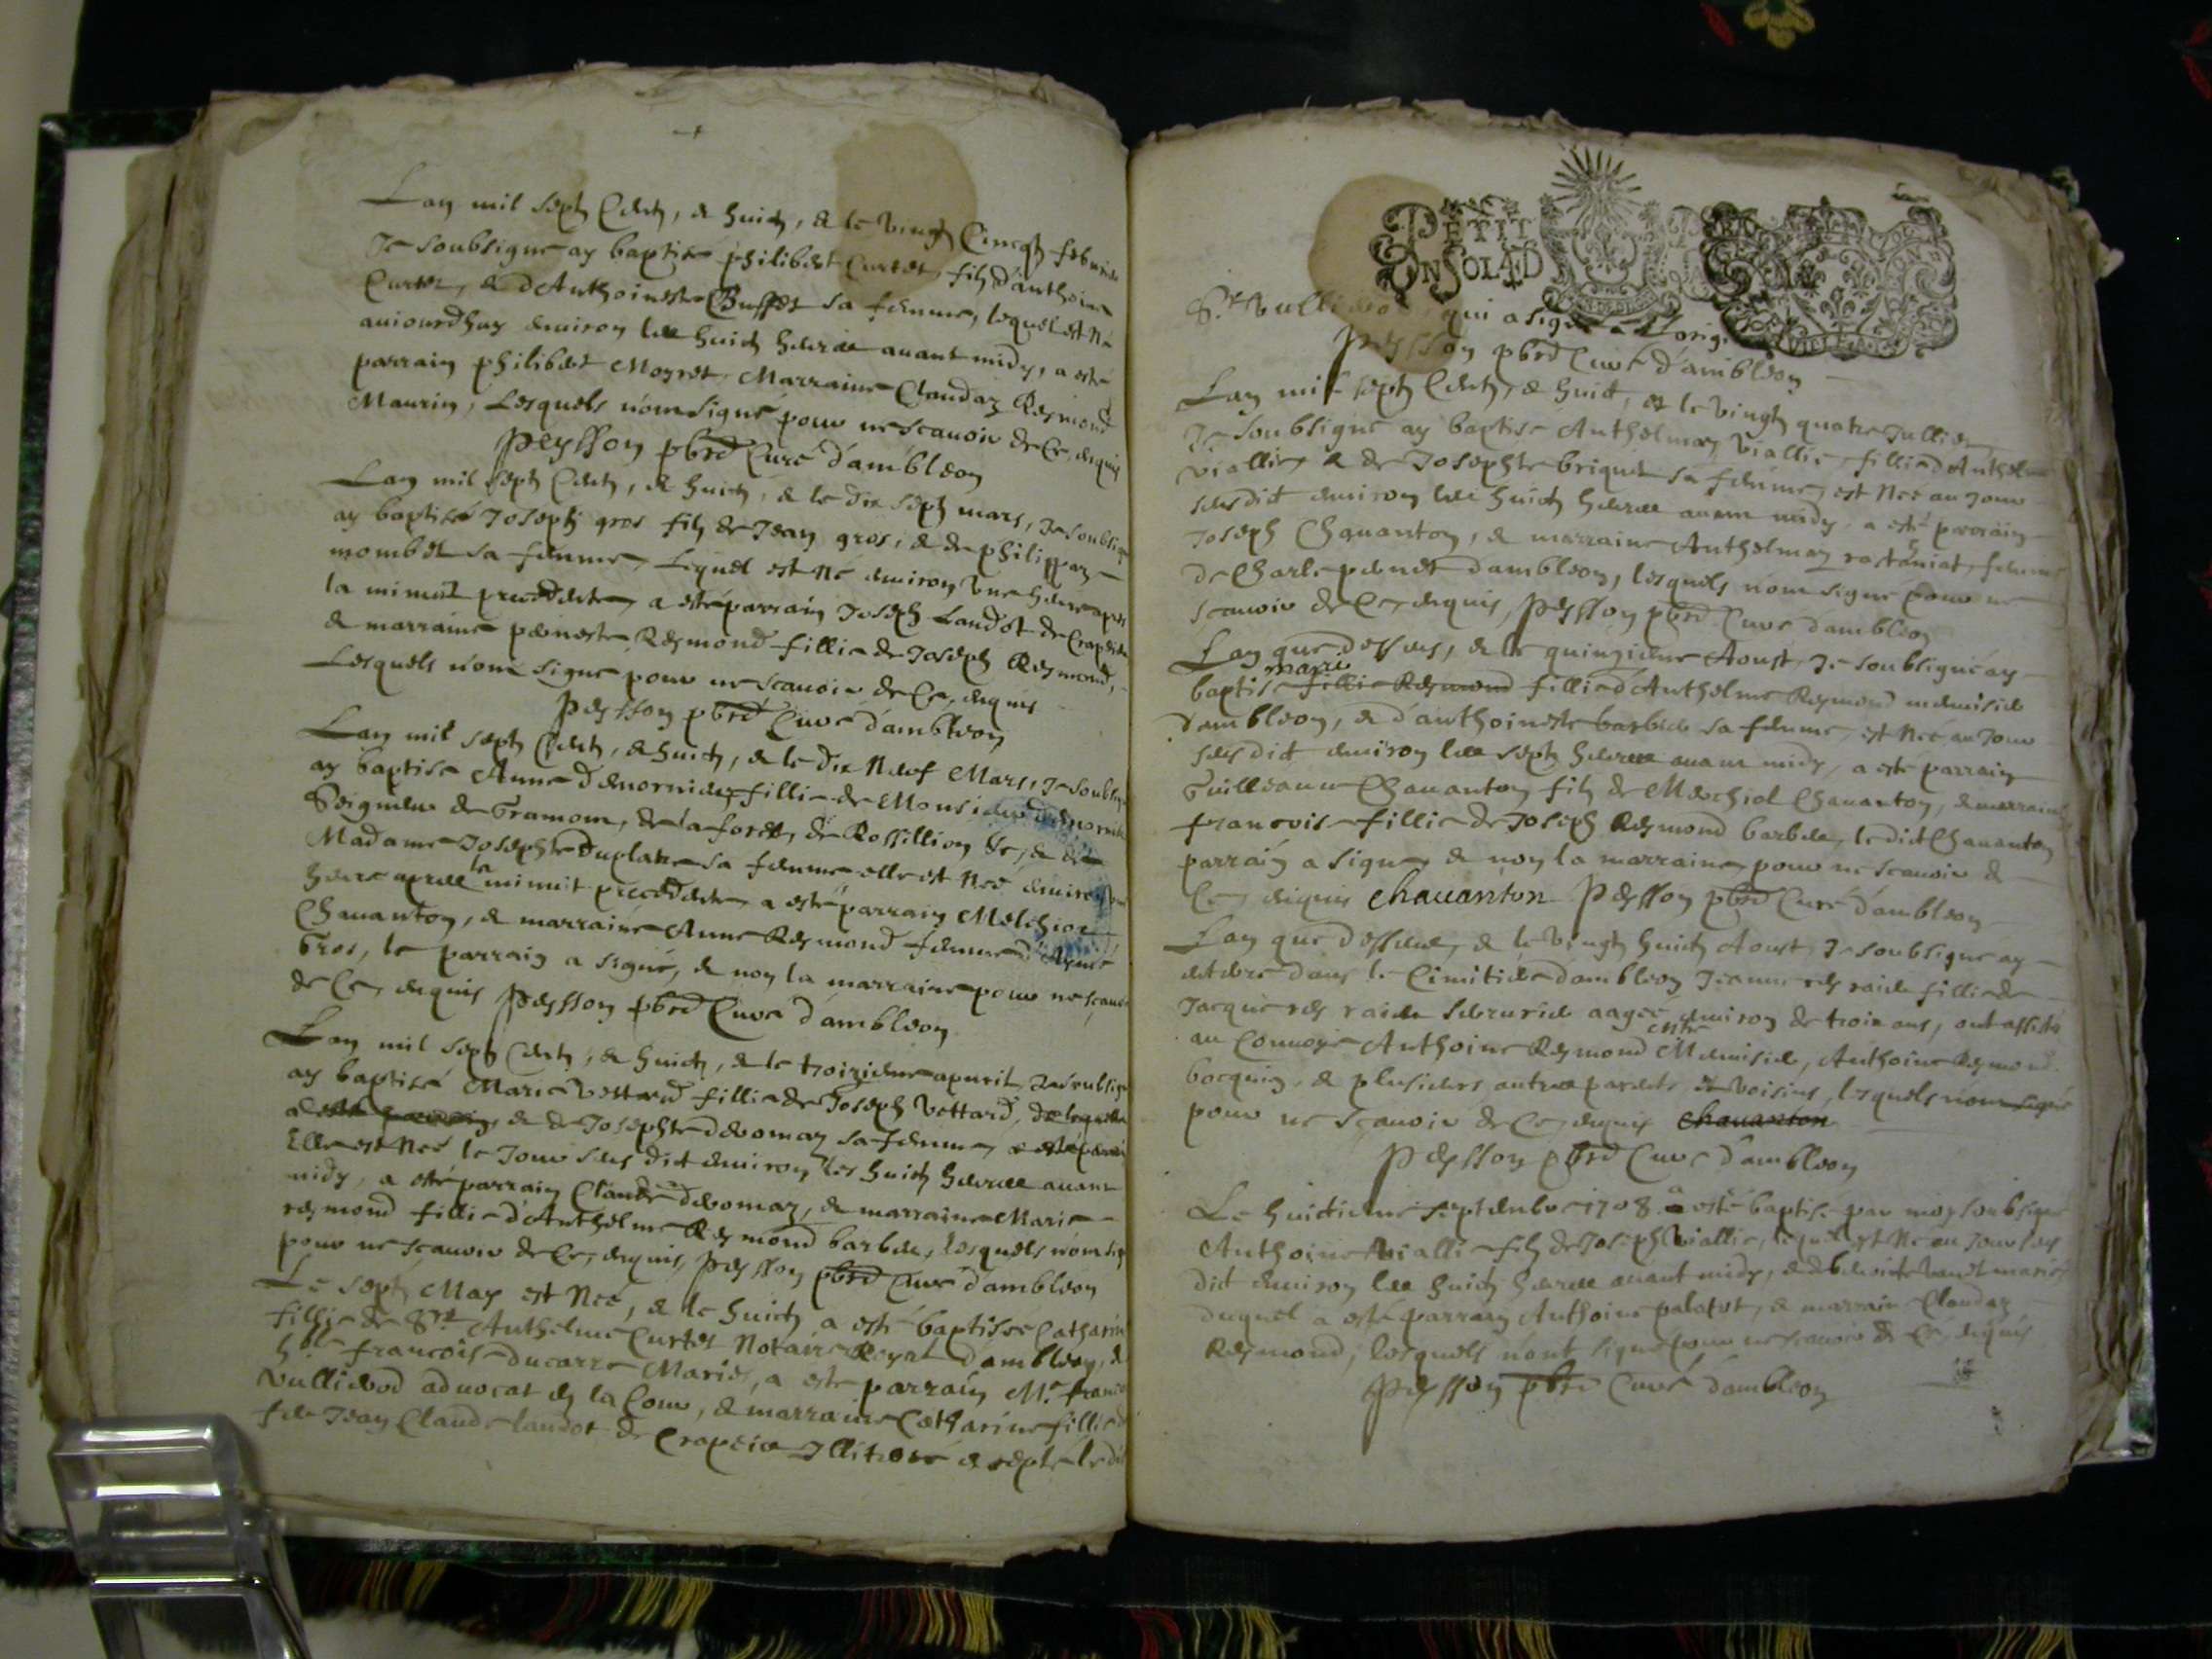 Lan mil sept Cents, & huict, & le vingt Cincq febvrier
Je soubsigne ay baptise philibert Curtet fils d'anthoine
Curtet, & d'Anthoineste Buffet sa femme, lequel est Né
auiourdhuy enuiron les huict heures auant midy, a esté
parrain philibert Moyret, Marraine Claudaz Reymond
Maurin, Lesquels n'ont signé pour ne scauoir de Ce, enquis
Peysson pbre Curé d'ambleon
Lan mil sept Cents, & huict, & le dix sept mars, Je soubsigne
ay baptisé Joseph gros fils de Jean gros, & de philippaz
mombet sa femme, Lequel est né enuiron vne heure apres
la minuit precedente, a esté parrain Joseph Landot de Crapeia
& marraine perneste Reymond fillie de Joseph Reymond,
Lesquels n'ont signe pour ne scauoir de Ce, enquis
Peysson pbre Curé d'ambleon
Lan mil sept Cents, & huict, & le dix Neuf Mars, Je soubsigne
ay baptise Anne fillie de Monsieur
Seigneur de Gramont, de la forest, de Rossillion &c, & de
Madame Josephte Duplatre sa femme elle est Neé enuiron
heure apres la minuit precedente, a esté parrain Melchior
Chauanton, & marraine Anne Reymond femme d'Aymé
Gros, le parrain a signé, & non la marraine pour ne scauoir
de Ce, enquis Peysson pbre Curé d'ambleon
Lan mil sept Cents, & huict, & le troizieme apuril, Je soubsigne
ay baptisé Marie Vettard fillie de Joseph Vettard, de laquelle
a esté parrain, & de Josephte deuomaz sa femme, a esté parrain
Elle est Neé le Jour sus dit enuiron les huict heures auant
midy, a esté parrain Claude deuomaz, & marraine Marie
reymond fillie d'Anthelme Reymond barbier, lesquels n'ont sig
pour ne scauoir de Ce, enquis, Peysson pbre Curé d'ambleon
Le sept May est Neé, & le huict a esté baptisée Catharine
fillie de Srt Anthelme Curtet Notaire Royal d'ambleon, &
hble francoise ducarre Mariés, a esté parrain Mr. francois
Vullierod aduocat en la Cour, & marraine Catharine fillie d
feu Jean Claude landot de Crapeia Illitteré & excepté ledit
PETIT
UN SOL 4D
Sr. Vullierod, qui a signé a Lorig
Peysson pbre Curé d'ambleon
Lan mil sept Cents, & huict, & le vingt quatre Jullier
Je soubsigné ay baptisé Anthelmaz Viallie, fillie d'Anthelme
Viallie & de Josephte briquet sa femme, est Neé au Jour
susdit enuiron les huict heures auant midy, a esté parrain
Joseph Chauanton, & marraine Anthelmaz femme
de Charle pernet d'ambleon, lesquels n'ont signé pour ne
scauoir de Ce, enquis, Peysson pbre Curé d'ambleon
Lan que dessus, & le quinzieme Aoust, Je soubsigné ay
marie
baptise fillie Reymond fillie d'Anthelme Reymond menusier
d'ambleon, & d'anthoineste barbier sa femme, est Neé au Jour
sus dit enuiron les sept heures auant midy, a esté parrain
Guilleaume Chauanton fils de Merchiol Chauanton, & marraine
francoise fillie de Joseph Reymond barbier, le dit Chauanton
parrain a signe, & non la marraine, pour ne scauoir de
Ce, enquis chauanton Peysson pbre Curé d'ambleon
Lan que dessus, & le vingt huict Aoust, Je soubsigne ay
enterré dans le Cimitiere d'ambleon Jeanne rey raide fillie de
Jacque rey raide serrurier aageé enuiron de trois ans, ont assisté
au Conuoye Anthoine Reymond Mtre menusier, Anthoine Reymond
bocquin, & plusieurs autres parents & voisins, lesquels n'ont signé
pour ne scauoir de Ce, enquis chauanton
Peysson pbre Curé d'ambleon
Le huictieme septembre 1708. a esté baptisé par moy soubsigné
Anthoine Viallie fils de Joseph Viallie, lequel est Né au Jour sus
dit enuiron les huict heures auant midy, & de mariés
duquel a esté parrain Anthoine palatet, & marraine Claudaz
Reymond, lesquels n'ont signé pour ne scauoir de Ce, enquis
Peysson pbre Curé d'ambleon